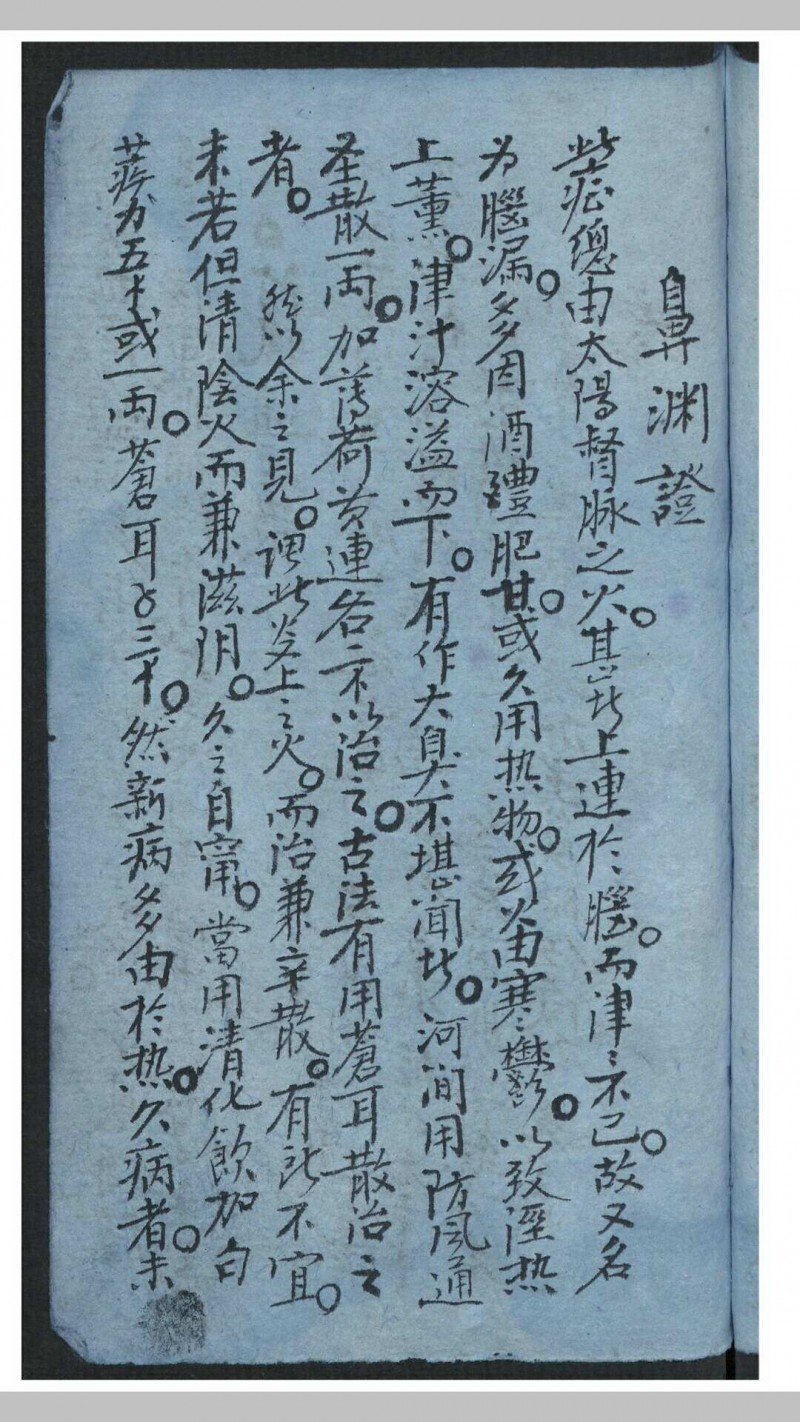 鼻渊證
此症總由太陽督脉之火。甚者上連於腦。而津〻不已。故又名
为腦漏。多因酒醴肥甘。或久用热物。或火由寒鬱。以致溼热
上薰。津汁溶溢而下。有作大臭不堪闻者。河间用防风通
圣散一両。加薄荷黄連各二不以治之。古法有用蒼耳散治之
者。然以余之見。謂此炎上之火。而治兼辛散。有所不宜。
未若但清陰火而兼滋阴。久之自甯。當用清化飲加白
蒺藜五or或一両。蒼耳子三才。然新病多由於热。久病者。未